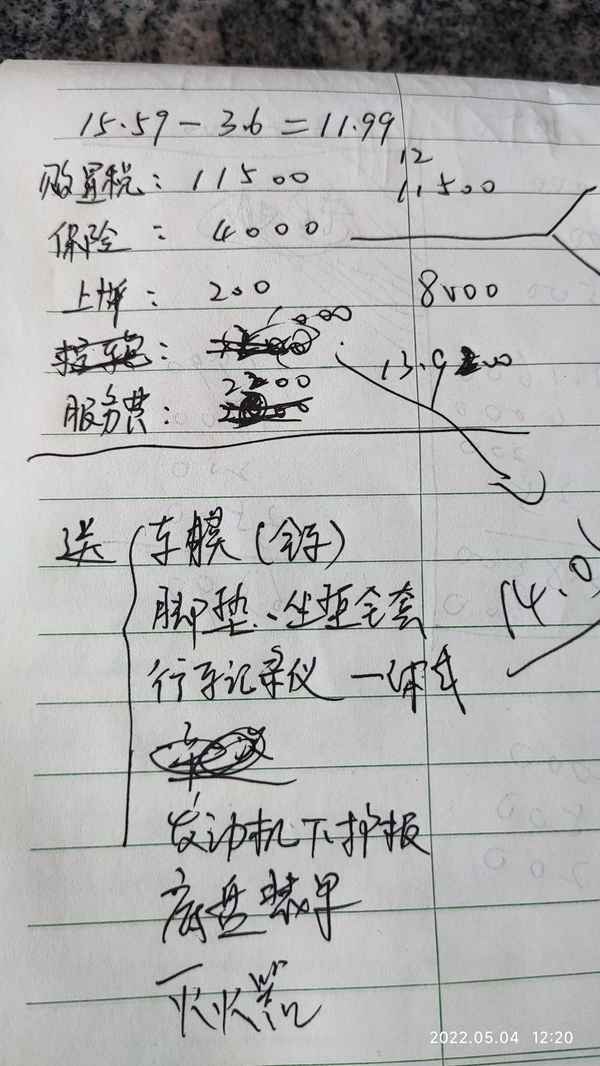 15.59 - 3.6 = 11.99
12
购置税: 11500 11500
保险: 4000
上牌: 200 8000
000
2200 13.9
服务费:
送 车膜(全车)
脚垫、坐垫全套
14.0
行车记录仪 一
发动机下护板
底盘装甲
灭火器
2022.05.04 12:20